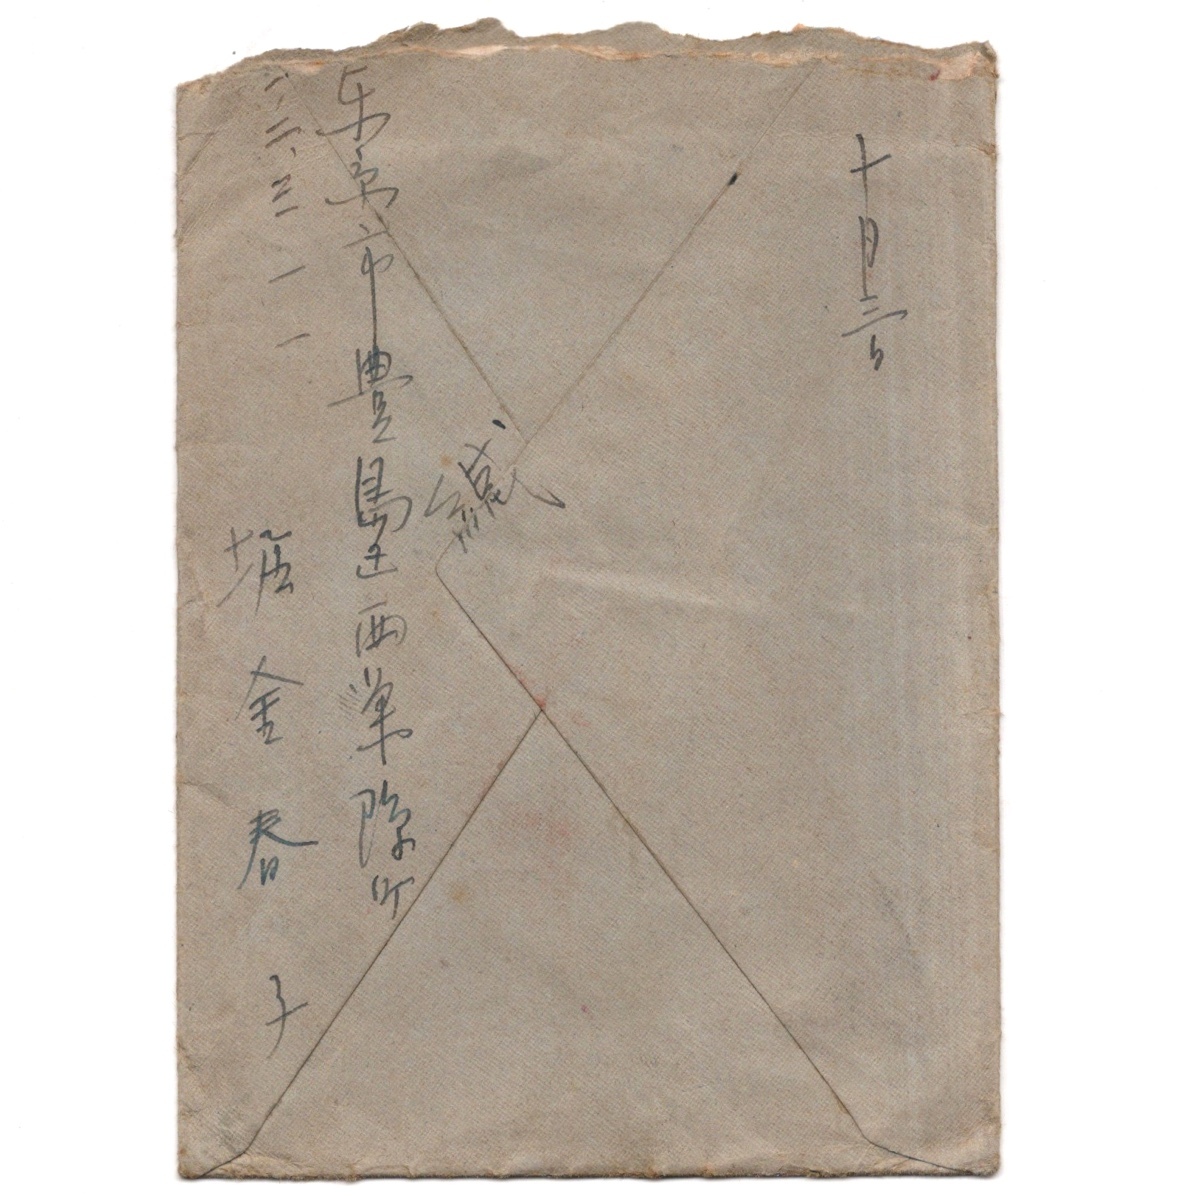 十月三日
緘
東京市豊島区西巣鴨町
二、二、三一一
堀金春子